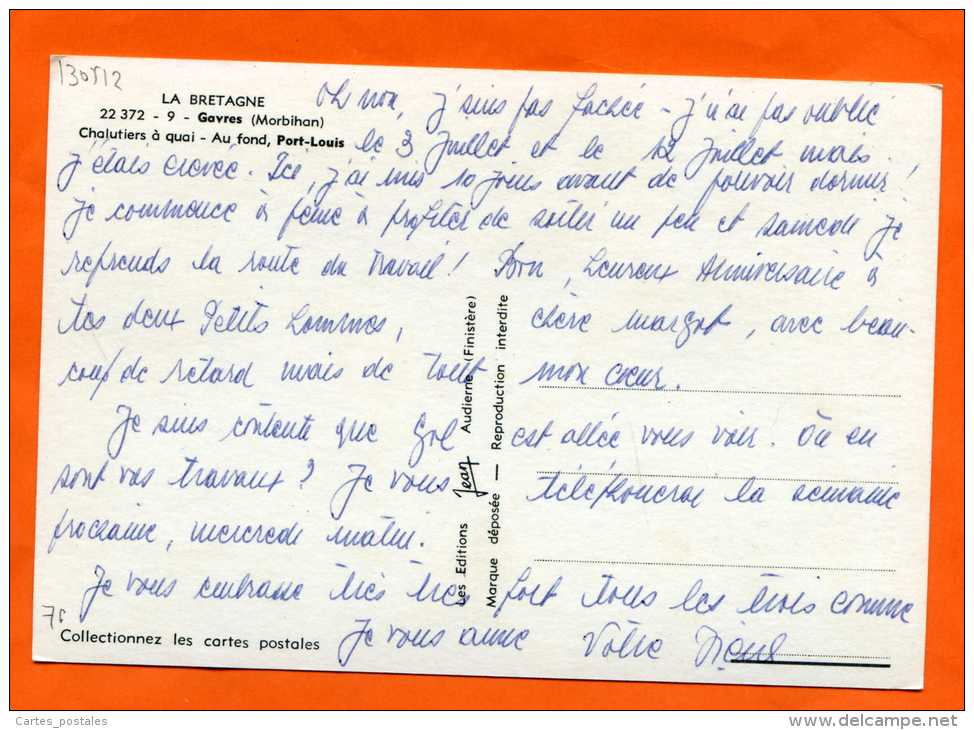 130512
LA BRETAGNE
22 372 - 9 - Gavres (Morbihan)
Chalutiers à quai - Au fond, Port-Louis
Oh non, j'suis pas fachée - j'n'ai pas oublié
le 3 Juillet et le 12 Juillet mais
j'étais crevée. Ici, j'ai mis 10 jours avant de pouvoir dormir!
Je commence à peine à profiter de un peu et samedi je
reprends la route du travail! Bon, heureux Anniversaire à
tes deux Petits hommes, chère Margot, avec beau-
coup de retard mais de tout mon cœur.
Je suis contente que est allée vous voir. Où en
sont vos travaux? Je vous téléphonerai la semaine
prochaine, mercredi matin.
Je vous embrasse très très fort tous les trois comme
Je vous aime Votre
76
Collectionnez les cartes postales
Les Editions Jean Audierne (Finistère)
Marque déposée — Reproduction interdite
Cartes_postales
delcampe.net